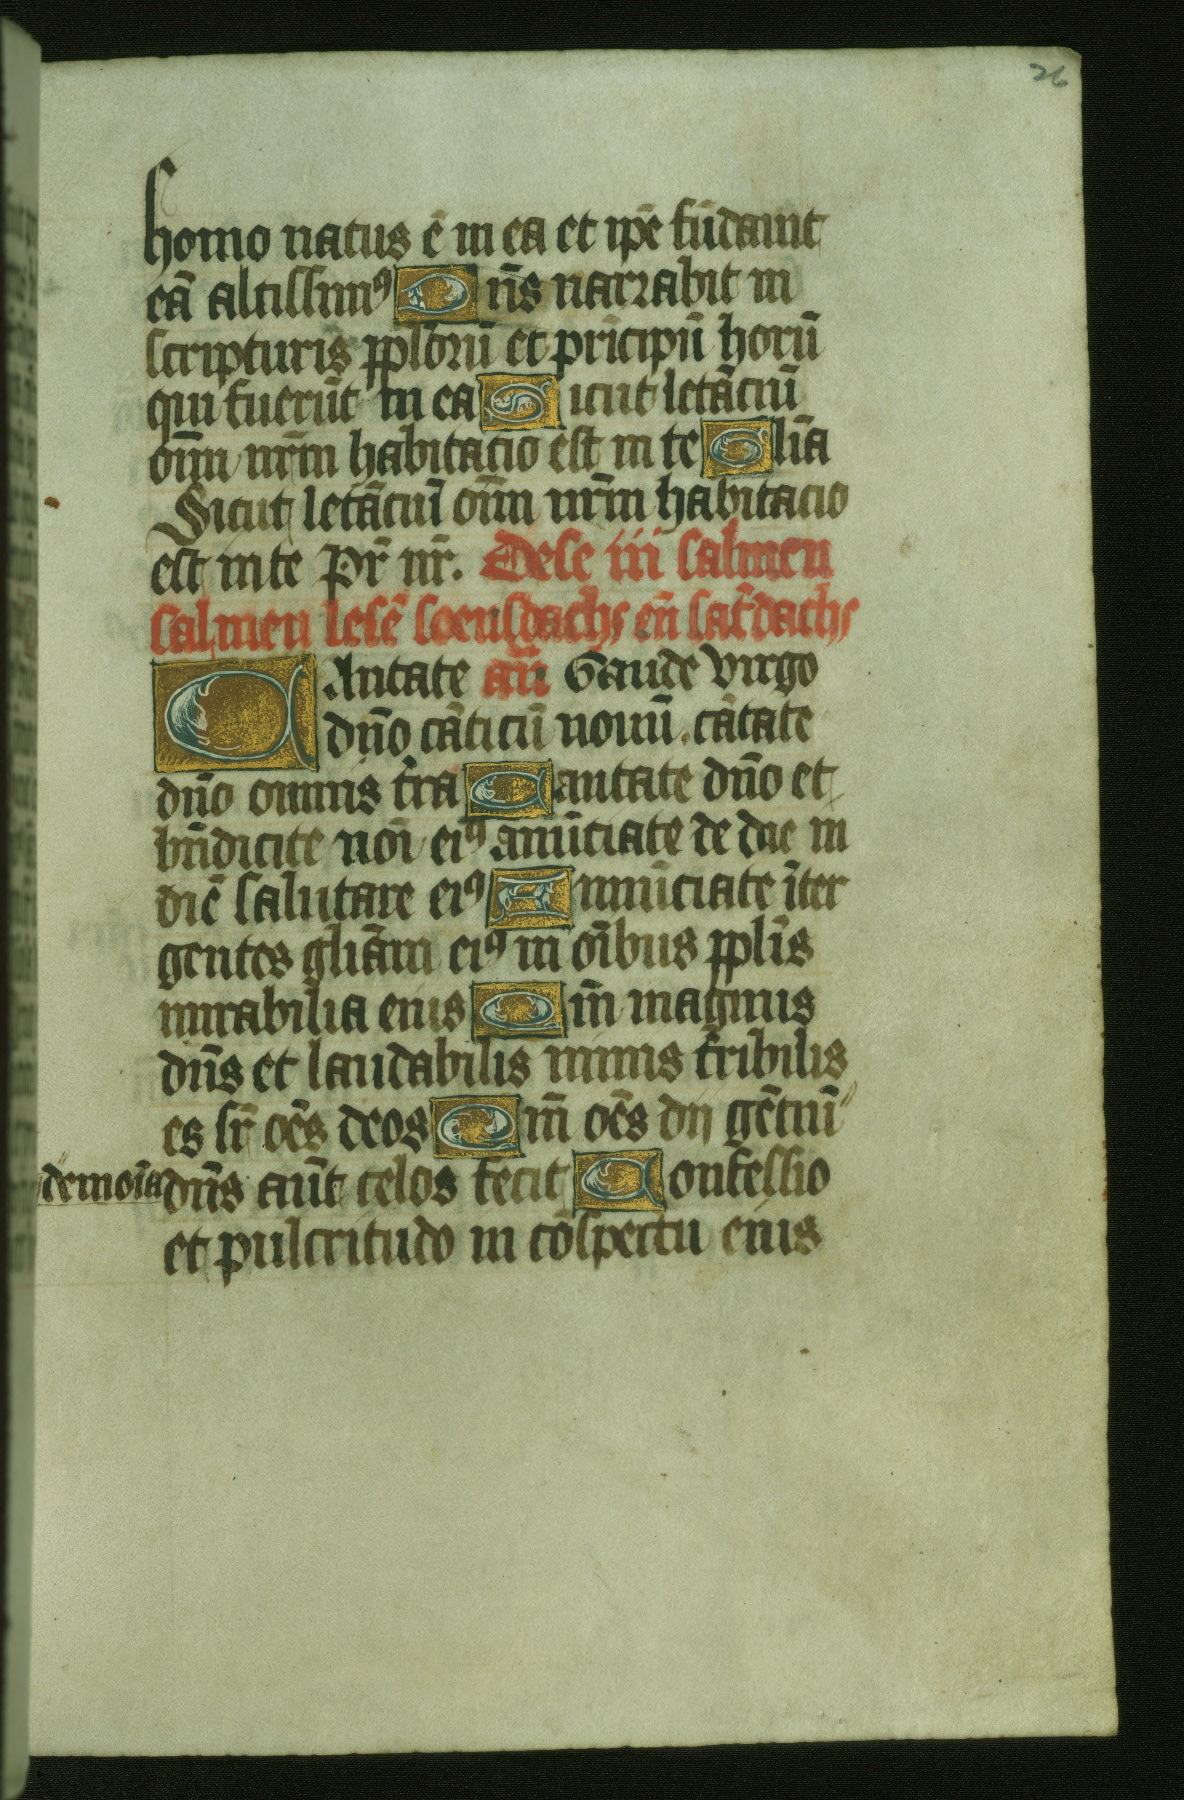 26
homo natus ē in ea et ip̄e fūdauit
eā altissimꝰ Dn̄s narrabit in
scripturis pp̄lorū et prīcipū horū
qui fuerūt in ea Sicut letāciū
om̄n nr̄m habitacio est in te Glīa
Sicut letāciū om̄n nr̄m habitacio
est in te Pr̄ nr̄. Dese iii salmen
salmen lesē soensdachs en̄ sat̄dachs
Cantate an̄ Gaude virgo
dn̄o cāticū nouū. cātate
dn̄o omnis t̄ra Cantate dn̄o et
bn̄dicite noī eiꝰ anūciate de die in
diē salutare eiꝰ Annūciate īter
gentes gliā̄m eiꝰ in oībus pp̄lis
mirabilia eius Qm̄ magnus
dn̄s et laudabilis nimis t̄ribilis
es sr̄ oēs deos Qm̄ oēs dij gētiū
demoīa dn̄s aūt celos fecit Confessio
et pulcritudo in cōspectu eius